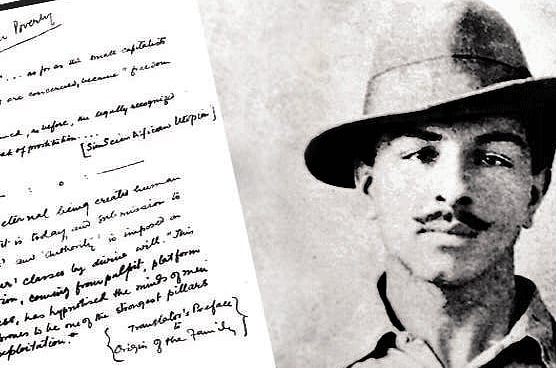 Poverty
"... as far as the small capitalists
are concerned, became "freedom
as before, an legally recognized
of prostitution....
[Soc Scientific an Utopian]
eternal being created human
it is today, and submission to
and 'authority' is imposed on
classes by divine will." This
coming from pulpit, platform
has hypnotised the minds of men
to be one of the strongest pillars
exploitation."
{Translator's Preface
to
Origin of the Family}